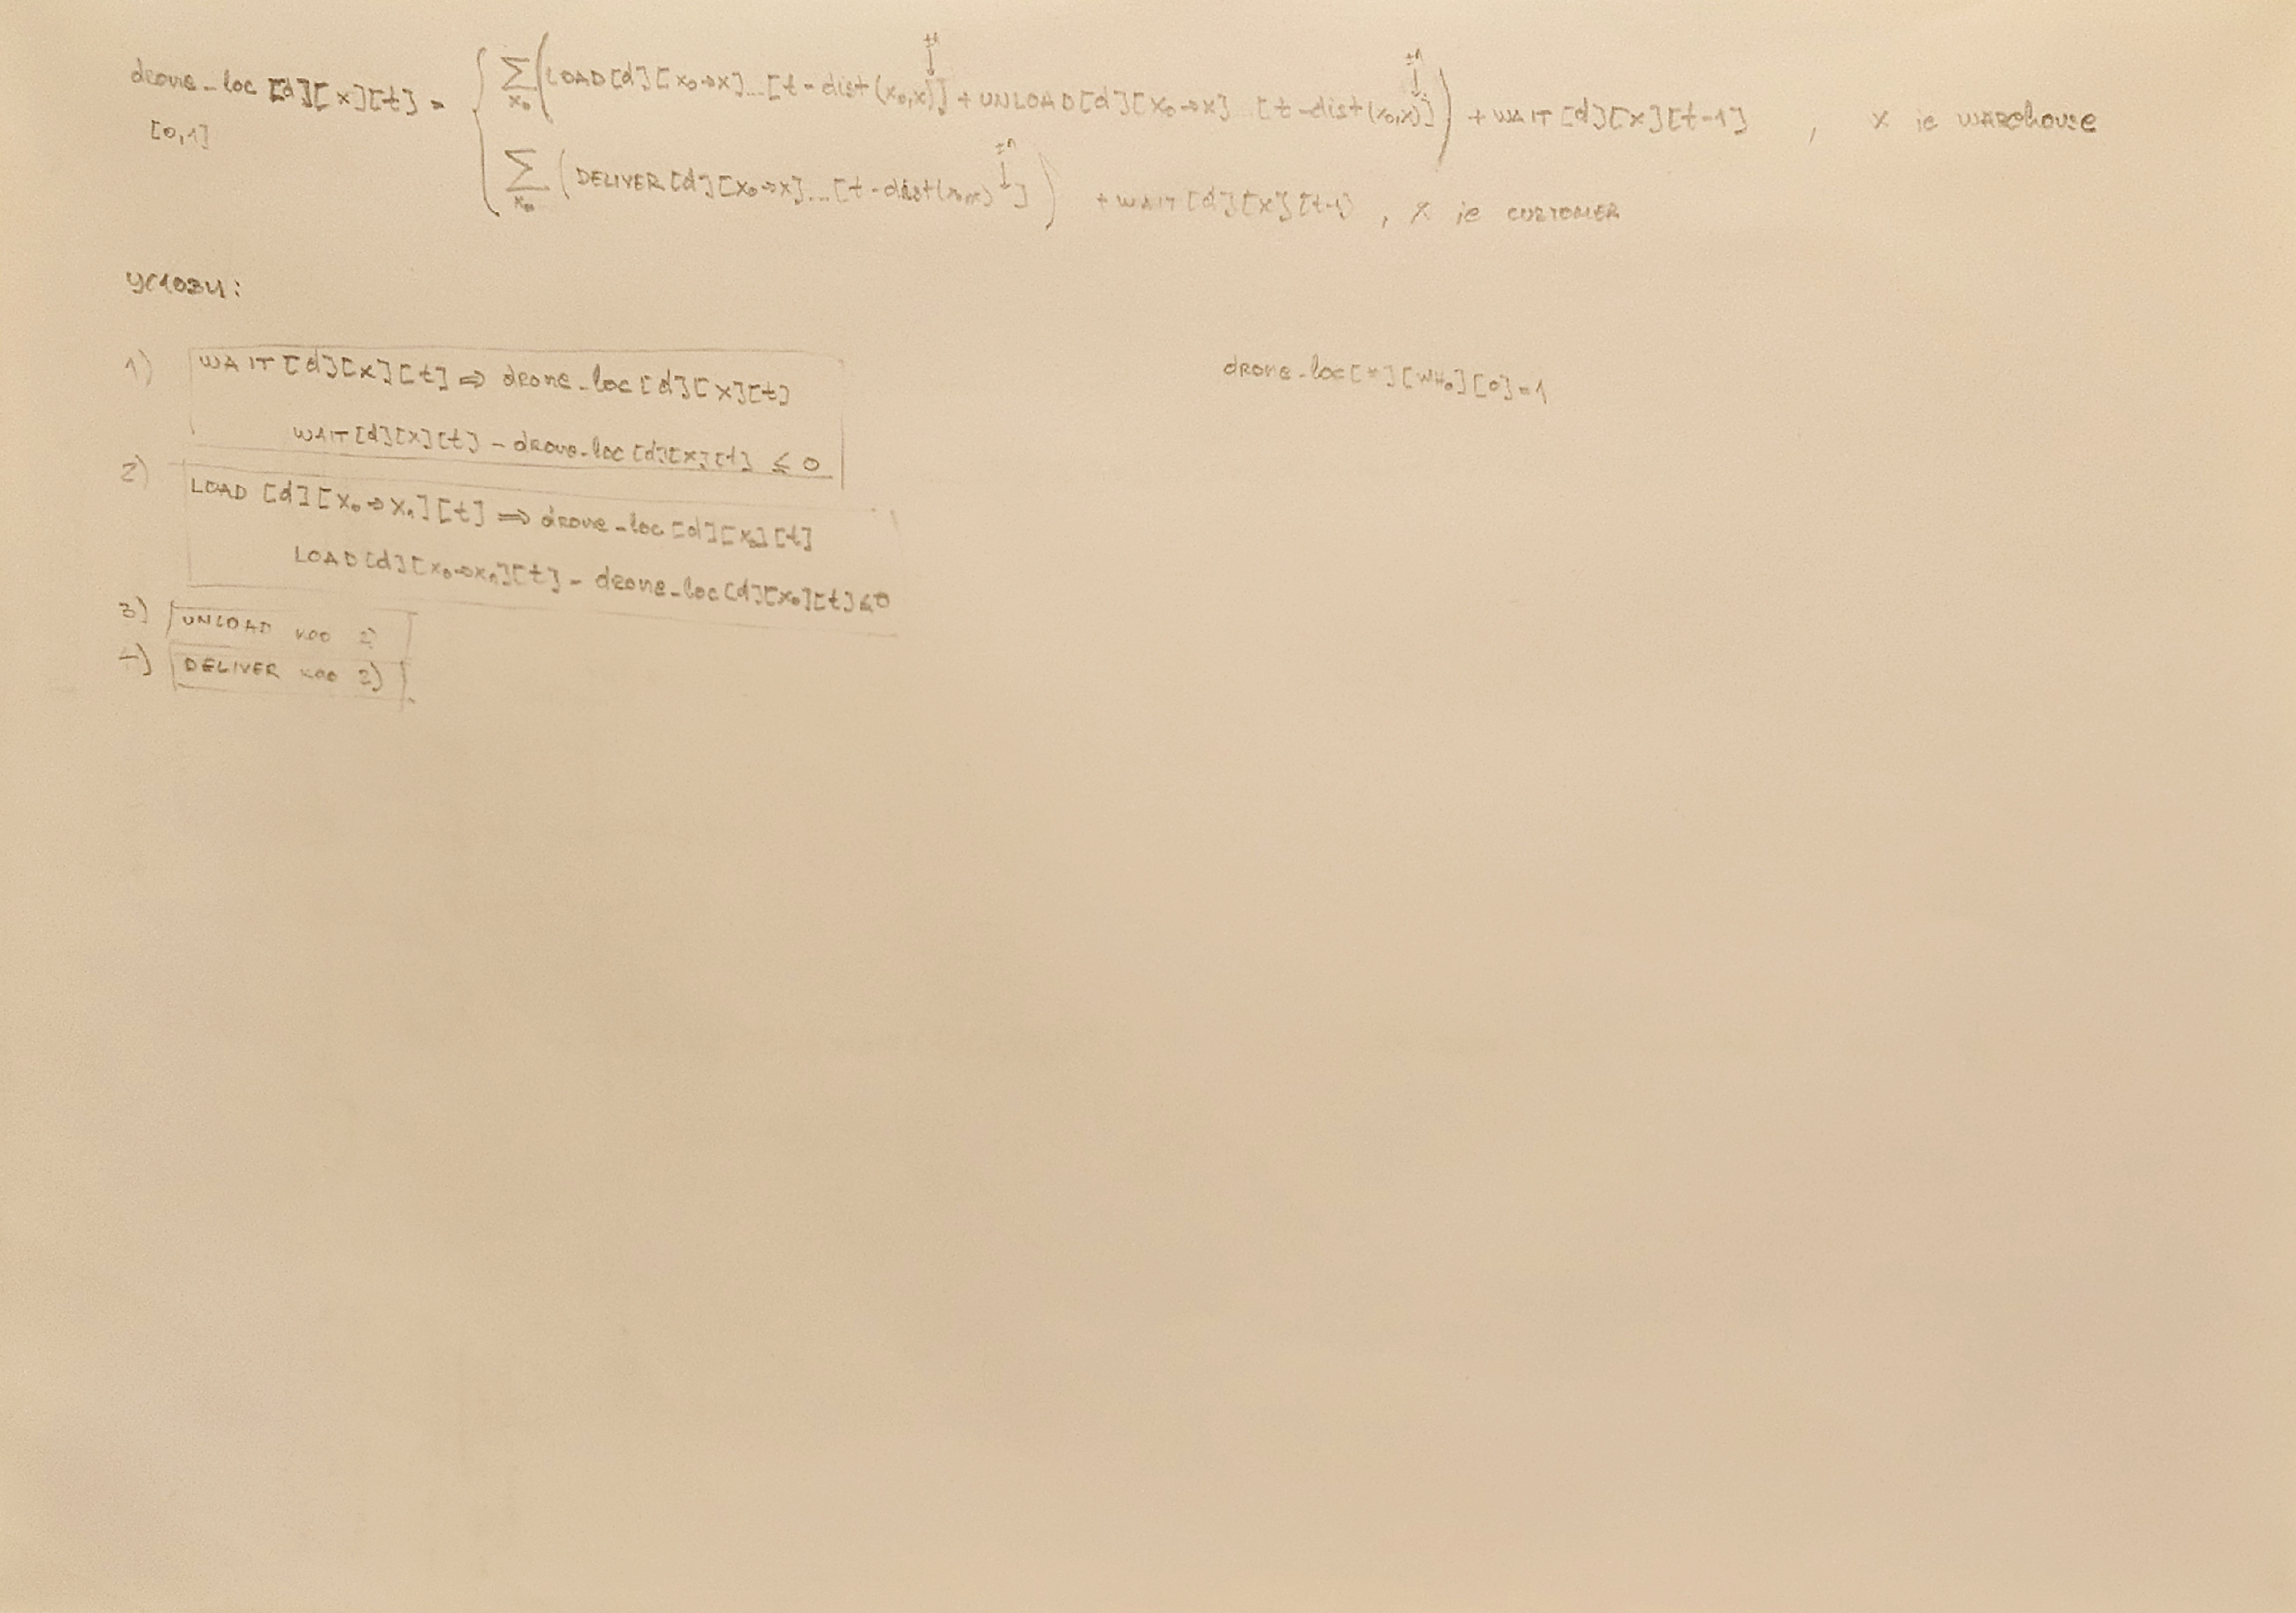 drone_loc [d][x][t] = { ∑x₀ (LOAD[d][x₀→x]...[t-dist(x₀,x)] + UNLOAD[d][x₀→x] [t-dist(x₀,x)]) + WAIT[d][x][t-1] , x је WAREhouse
[0,1]
∑x₀ (DELIVER[d][x₀→x]...[t-dist(x₀,x)]) + WAIT[d][x][t-1] , x је CUSTOMER
УСЛОВИ:
1) WAIT[d][x][t] ⇒ drone_loc[d][x][t]
drone_loc[*][WH₀][0]=1
WAIT[d][x][t] - drone_loc[d][x][t] ≤ 0
2) LOAD [d][x₀→x₁][t] ⇒ drone_loc[d][x₀][t]
LOAD[d][x₀→x₁][t] - drone_loc[d][x₀][t] ≤ 0
3) UNLOAD као 2)
4) DELIVER као 2)